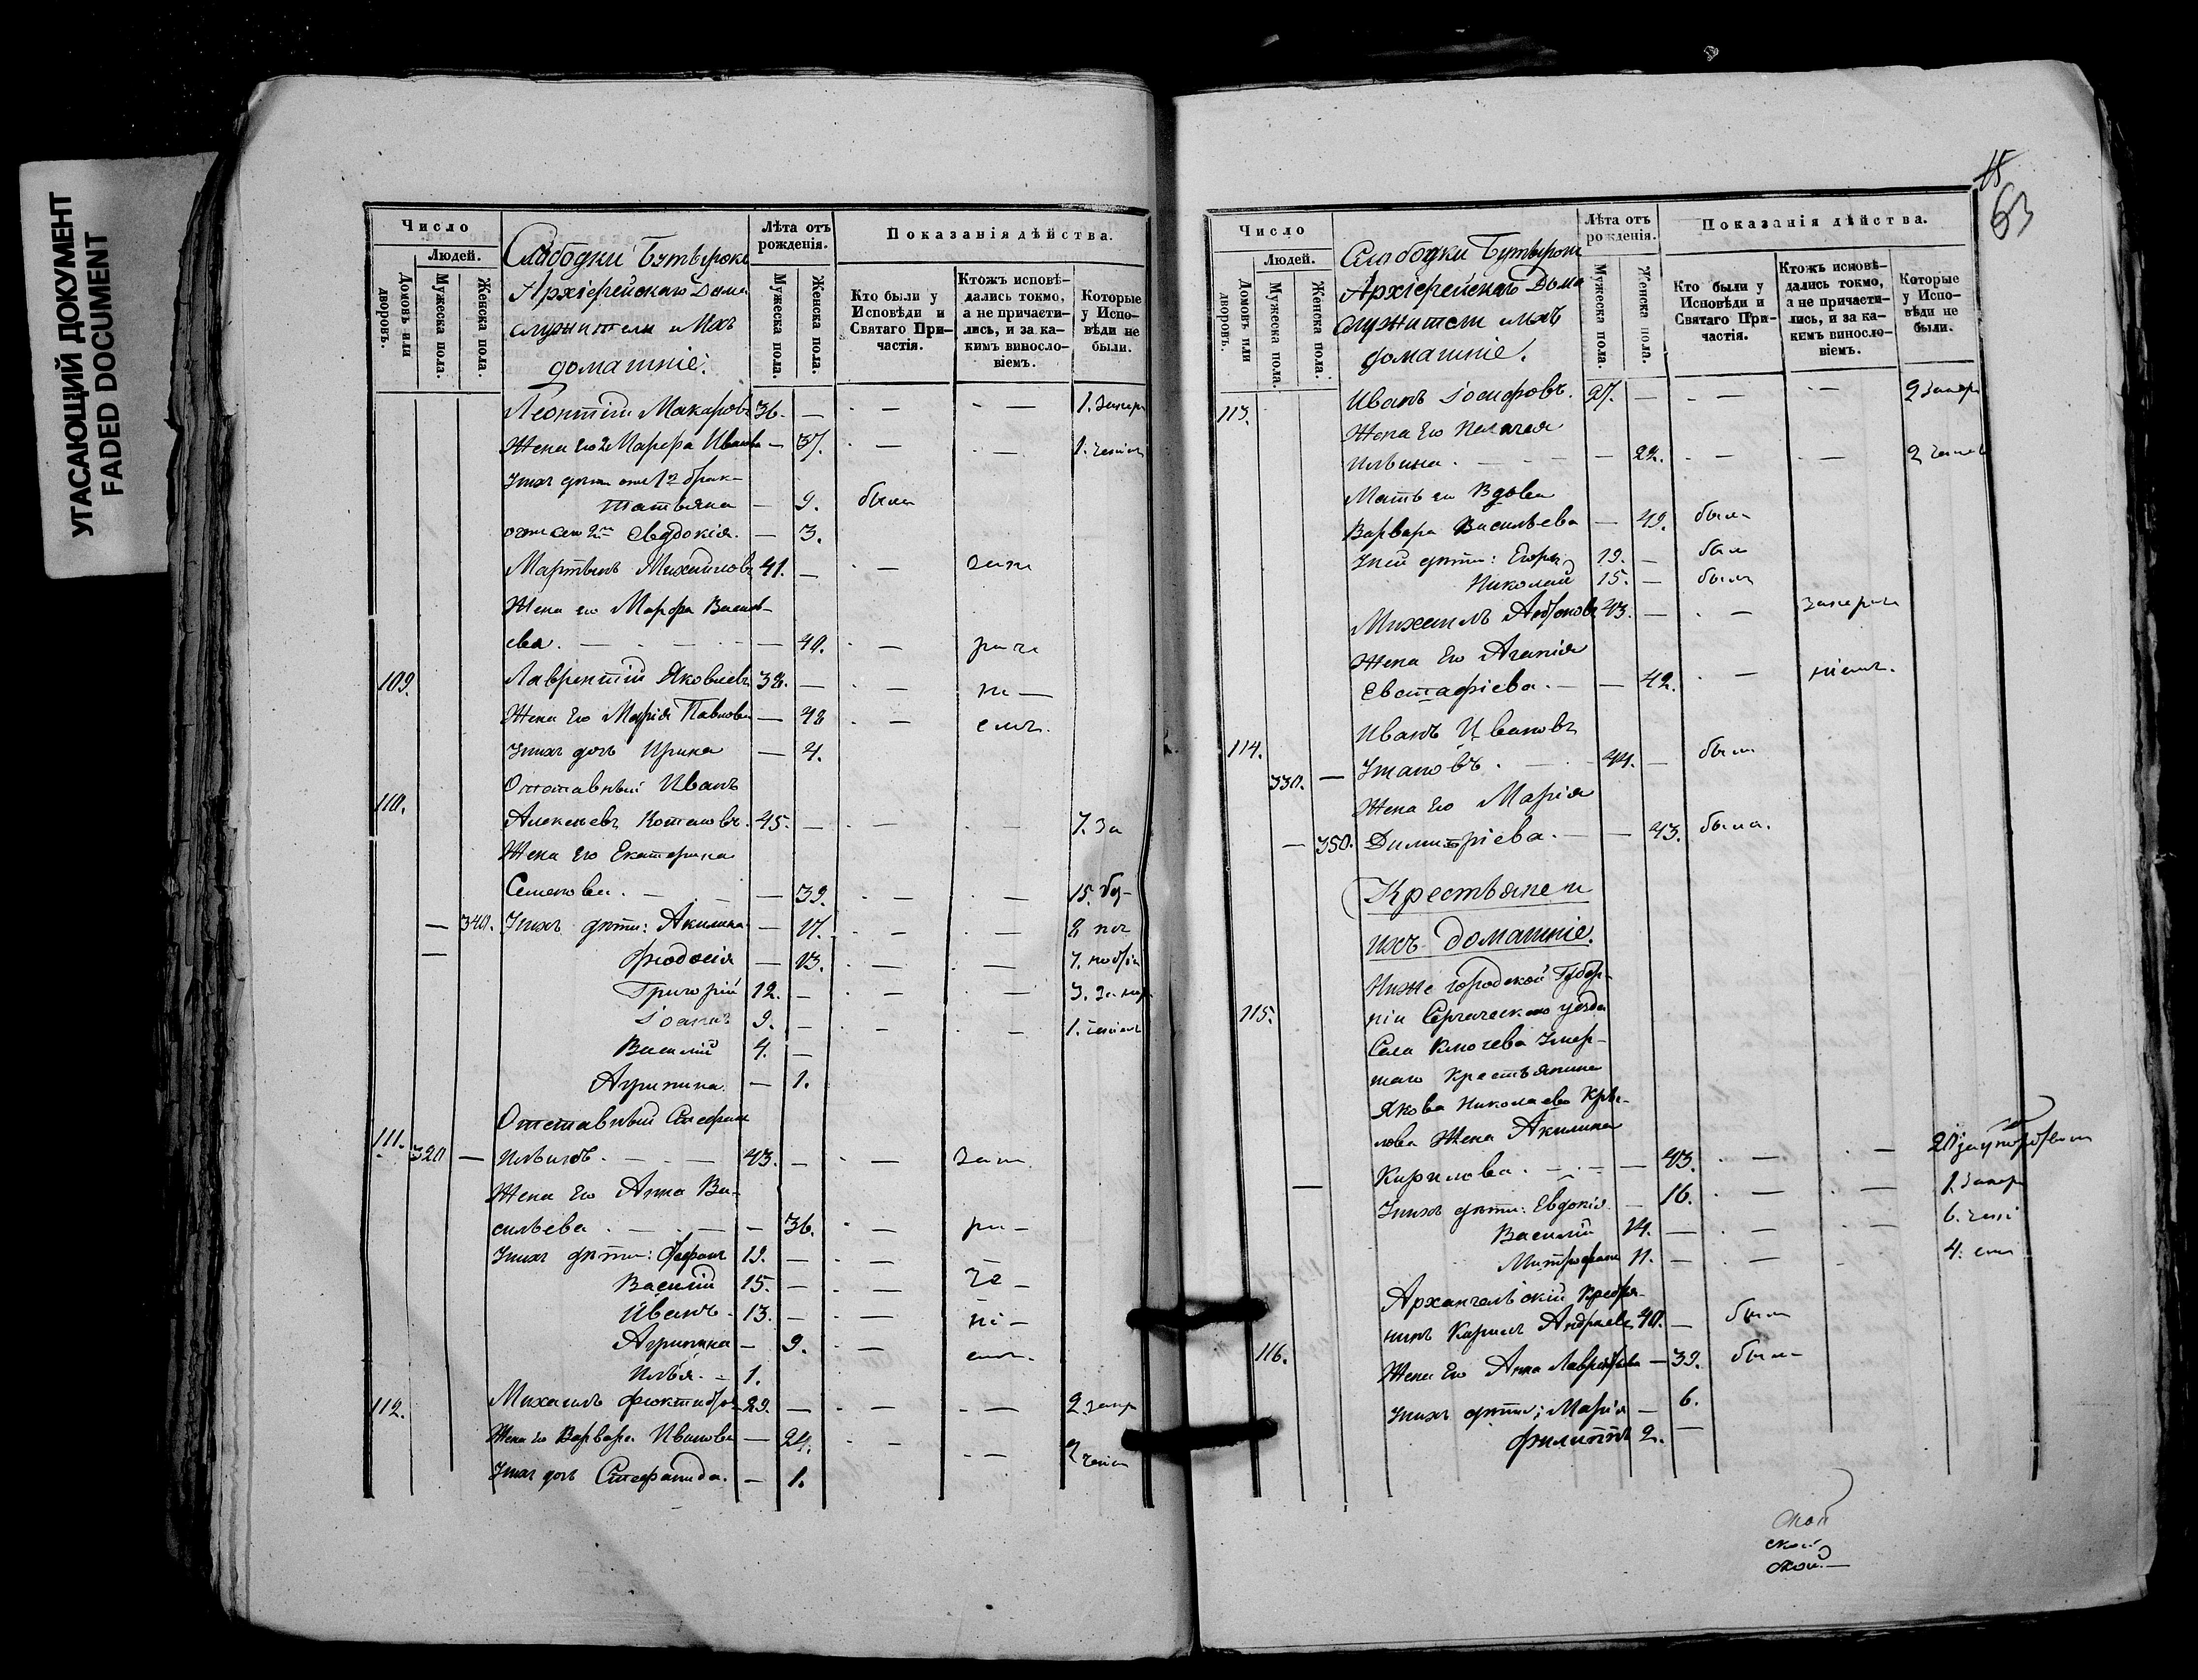 УГАСАЮЩИЙ ДОКУМЕНТ
FADED DOCUMENT
Число
Людей.
Домовъ или дворовъ.
Мужеска пола.
Женска пола.
Слободки Бутырокъ
Архіерейскаго Дома
служители и ихъ
домашніе.
Лѣта отъ рожденія.
Мужеска пола.
Женска пола.
Показанія дѣйства.
Кто были у Исповѣди и Святаго Причастія.
Ктожъ исповѣдались токмо, а не причастились, и за какимъ винословіемъ.
Которые у Исповѣди не были.
Леонтій Макаровъ 36. — — —
Жена его 2 Марфа Иванова — 37. — —
Татьяна — 9. была
Евдокія. — 3.
Мартынъ Михайловъ 41. — —
Жена его Марфа Василь-
ева. — 40. —
109. Лаврентій Яковлевъ 38. — — —
Жена Его Марія Павлова — 48 —
У нихъ дочь Ирина — 4.
110. Отставный Иванъ
Алексѣевъ 45. — — — 7. За
Жена Его Екатерина
Семенова. — 39. — — 15.
— 340. У нихъ дѣти: Акилина — 17. — — 8
— Ѳеодосія — 13. — — 7.
Григорій 12. — — — 3.
Іоаннъ 9. — — — 1.
Василій 4. —
Агрипина — 1.
Отставный Стефанъ
111. 320 — Ильинъ. 43. — —
Жена Его Анна Ва-
сильева — 36. —
У нихъ дѣти: 19. — —
Василій 15. — —
Иванъ 13. — —
Агрипина — 9. —
Илья. 1.
112. Михаилъ 29. — — — 2
Жена его Варвара Иванова — 24. — — 2
У нихъ дочь Стефанида. — 1.
63
Число
Людей.
Домовъ или дворовъ.
Мужеска пола.
Женска пола.
Слободки Бутырокъ
Архіерейскаго Дома
служители и ихъ
домашніе.
Лѣта отъ рожденія.
Мужеска пола.
Женска пола.
Показанія дѣйства.
Кто были у Исповѣди и Святаго Причастія.
Ктожъ исповѣдались токмо, а не причастились, и за какимъ винословіемъ.
Которые у Исповѣди не были.
113. Иванъ Іосифовъ. 27. — — — 2
Жена Его Пелагея
Ильина. — 22. — — 2
Мать его Вдова
Варвара Васильева — 49. была
У ней дѣти: 19. — былъ
Николай 15. — былъ
Михаилъ 43. — —
Жена Его Агапія
Евстафіева. — 42. —
114. Иванъ Ивановъ
330. — 44. — былъ
Жена Его Марія
— 350. Димитріева. — 43. была.
Крестьяне и
ихъ домашніе.
115. Нижегородской Губер-
ніи Сергачскаго уѣзда
Села Ключева Умер-
шаго Крестьянина
Якова Николаева Кры-
лова Жена Акилина
Кирилова. — 43. — —
— У нихъ дѣти: Евдокія — 16. — — 1.
Василій 14. — — — 6.
Митрофанъ 11. — — 4.
Архангельскій
116. Кирилъ Андреевъ 40. — былъ
Жена Его Анна — 39. была
У нихъ дѣти: Марія — 6.
Филиппъ 2. —